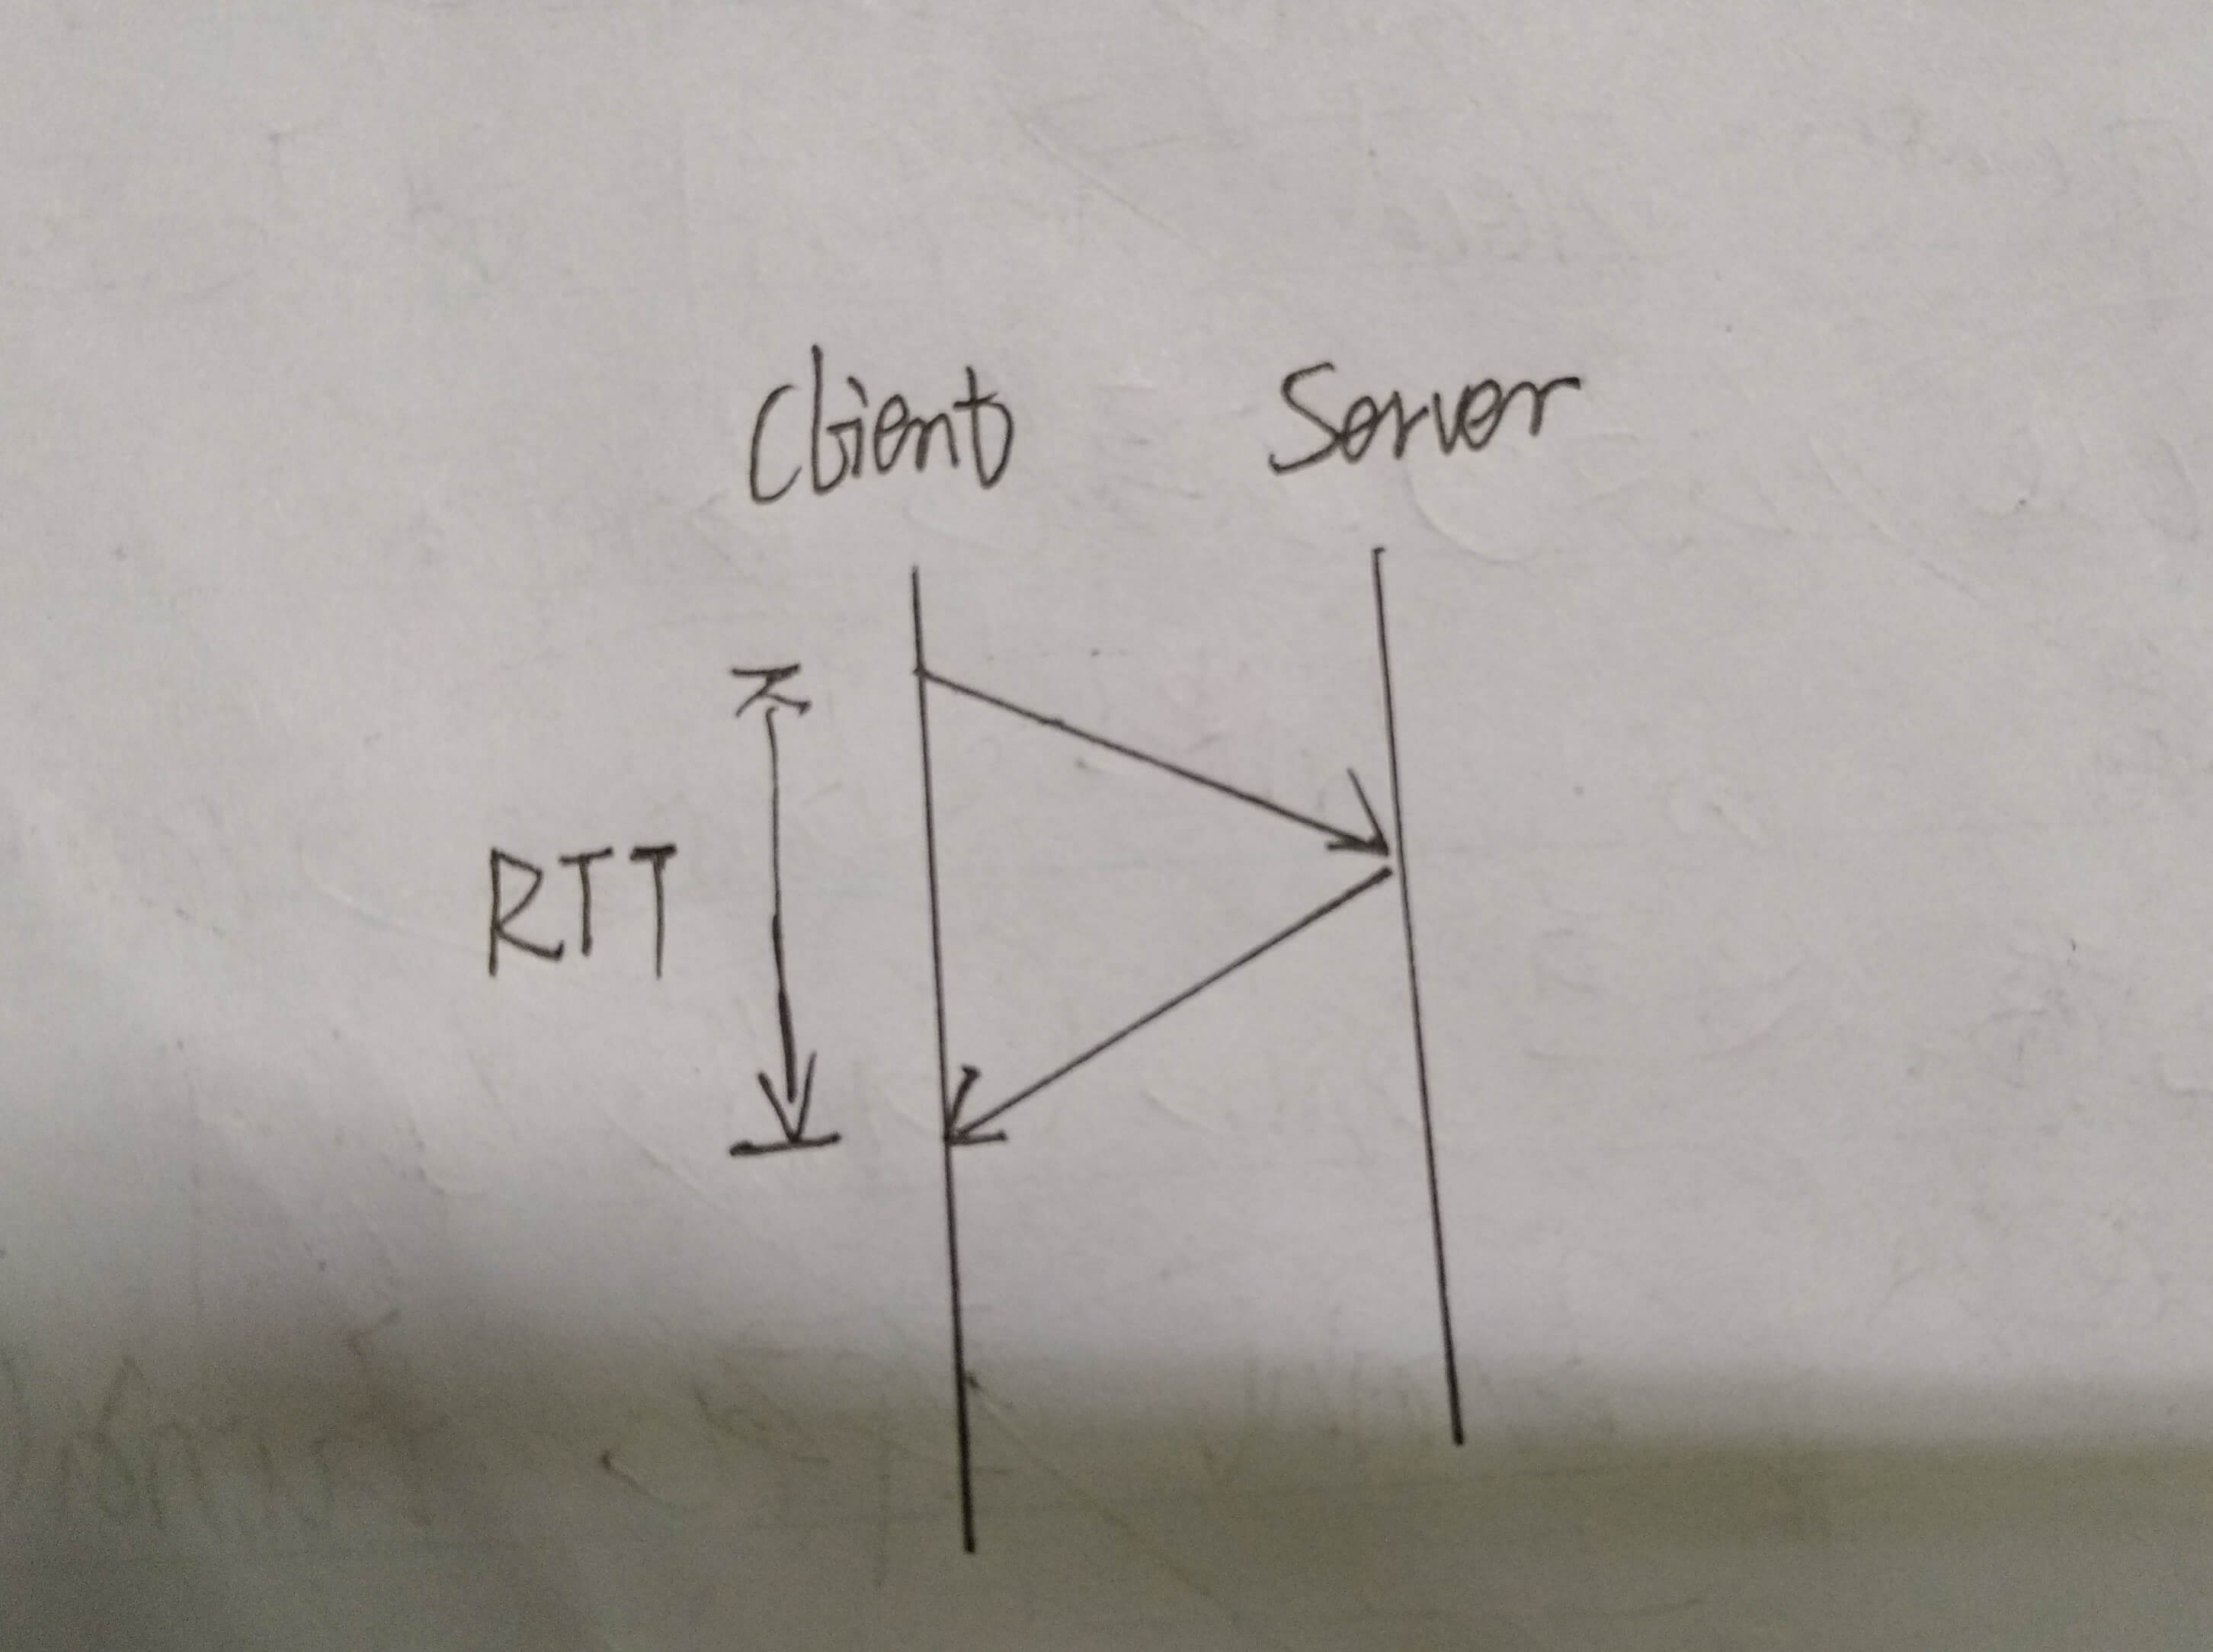 Client Server
RTT